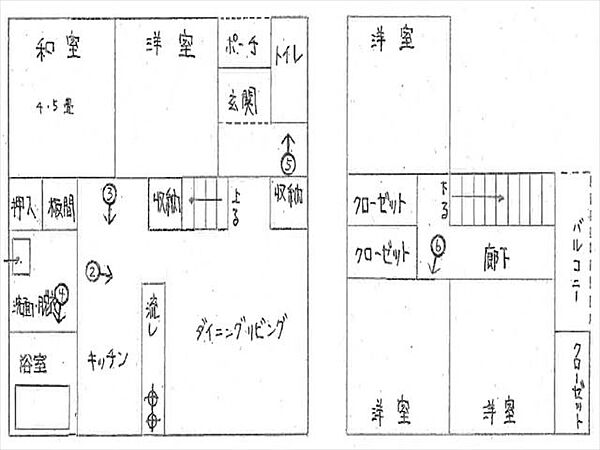 和室
洋室
ポーチ
トイレ
4.5畳
玄関
⑤
押入
板間
③
収納
上る
収納
②
④
洗面・脱衣
流し
ダイニングリビング
キッチン
浴室
洋室
クローゼット
下る
クローゼット
⑥
廊下
バルコニー
洋室
洋室
クローゼット